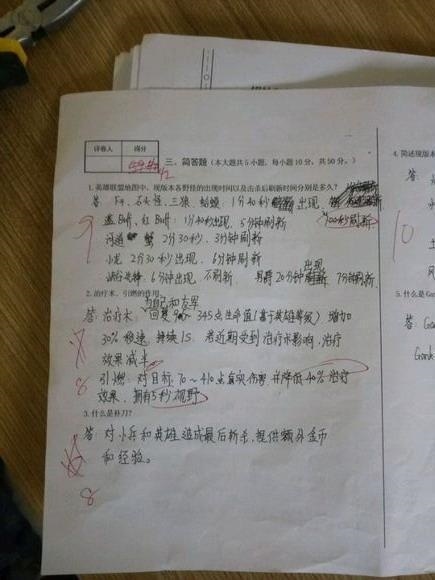 评卷人 得分
三、简答题（本大题共5小题，每小题10分，共50分。）
1. 英雄联盟地图中，现版本各野怪的出现时间以及击杀后刷新时间分别是多久？
答：F4、石头怪、三狼、蛤蟆：1分40秒 出现，
100秒刷新
蓝Buff、红Buff：1分40秒出现，5分钟刷新
河道蟹 2分30秒，3分钟刷新
小龙 2分30秒出现，6分钟刷新
峡谷先锋：6分钟出现 不刷新 男爵20分钟出现 7分钟刷新
9
2. 治疗术、引燃的作用
与自己和友军
答：治疗术：回复90~345点生命值(基于英雄等级) 增加
30%移速 持续1S. 若近期受到治疗术影响，治疗
效果减半
引燃：对目标70~410点真实伤害 并降低40%治疗
效果、拥有5秒视野
8
3. 什么是补刀？
答：对小兵和英雄造成最后斩杀，提供额外金币
和经验。
8
4. 简述现版本
答：
10
5. 什么是G
答：Gan
Gank